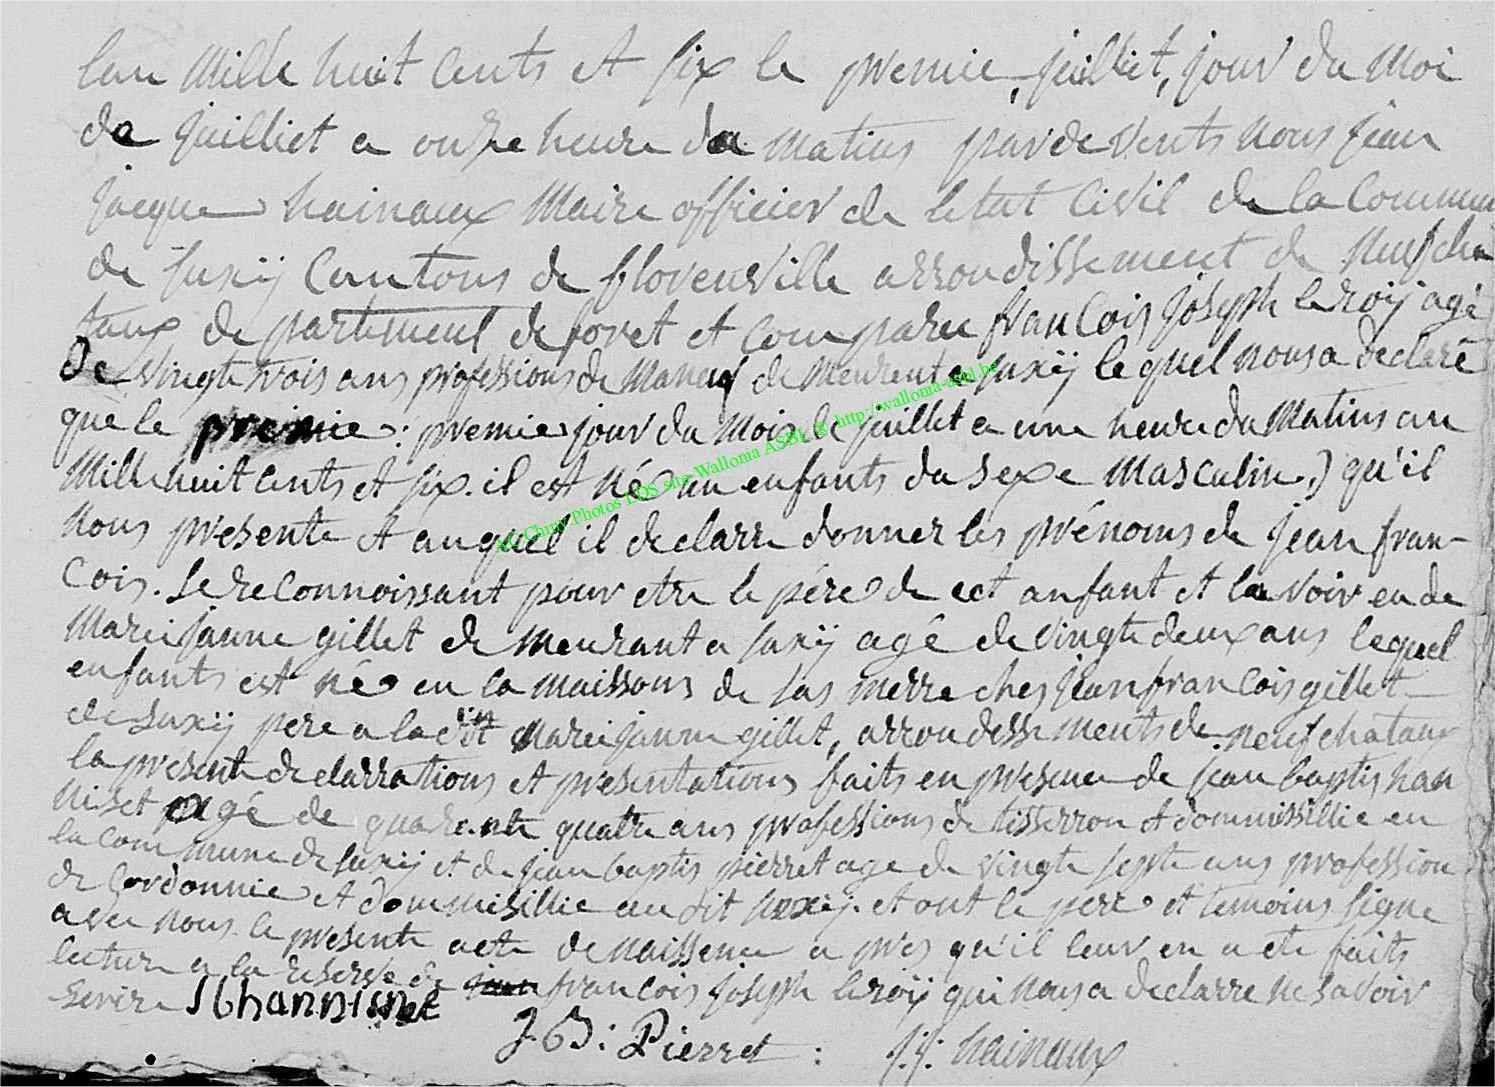 lan Mille huit Cents et six le premie, juilliet, jour du Moi
de juilliet a onze heure du matins pardevents nous jean
jacque hainaux Maire officier de letat Civil de la Commun
de suxÿ Cantons de florenville arrondissement de neufcha
taux departement deforet et comparu francois joseph leroÿ agé
De vingtetrois ans professions de Maneuf demeurent a suxÿ lequel nous a declaré
que le premie : premie jour du Mois de juillet a une heure du Matins an
Mille huit Cents et six. il est né un enfants du sexe Masculin.) qu'il
nous presente et auquel il declarre donner les prénoms de jean fran-
Cois. se reconnoissant pour etre le pére de cet anfant et lavoir eu de
Marei janne gillet demeurant a suxÿ agé de vingte deux ans lequel
enfants est né en la maissons de sas merre ches jean francois gillet
de suxÿ pere a la dit Marei janne gillet, arrondessements de neufchataux
la presente declarrations et presentations faits en presence de jean baptis han
niset agé de quarente quatre ans professions de tisserron et dommissillie en
la commune de suxÿ et de jean baptis pierret age de vingte septe ans profession
de Cordonnie et dommisillie au dit suxÿ. et ont le pere et temoins signe
avec nous le presente acte de naissence a pres qu'il leur en a ete faits
lecture a la reserve de jean francois joseph leroÿ qui nous a declarre ne savoir
Serire JBhannisne
J. B: Pierret : j. j. hainaux
AC Chiny Photos LDS site Wallonia ASBL & http://wallonia-asbl.be